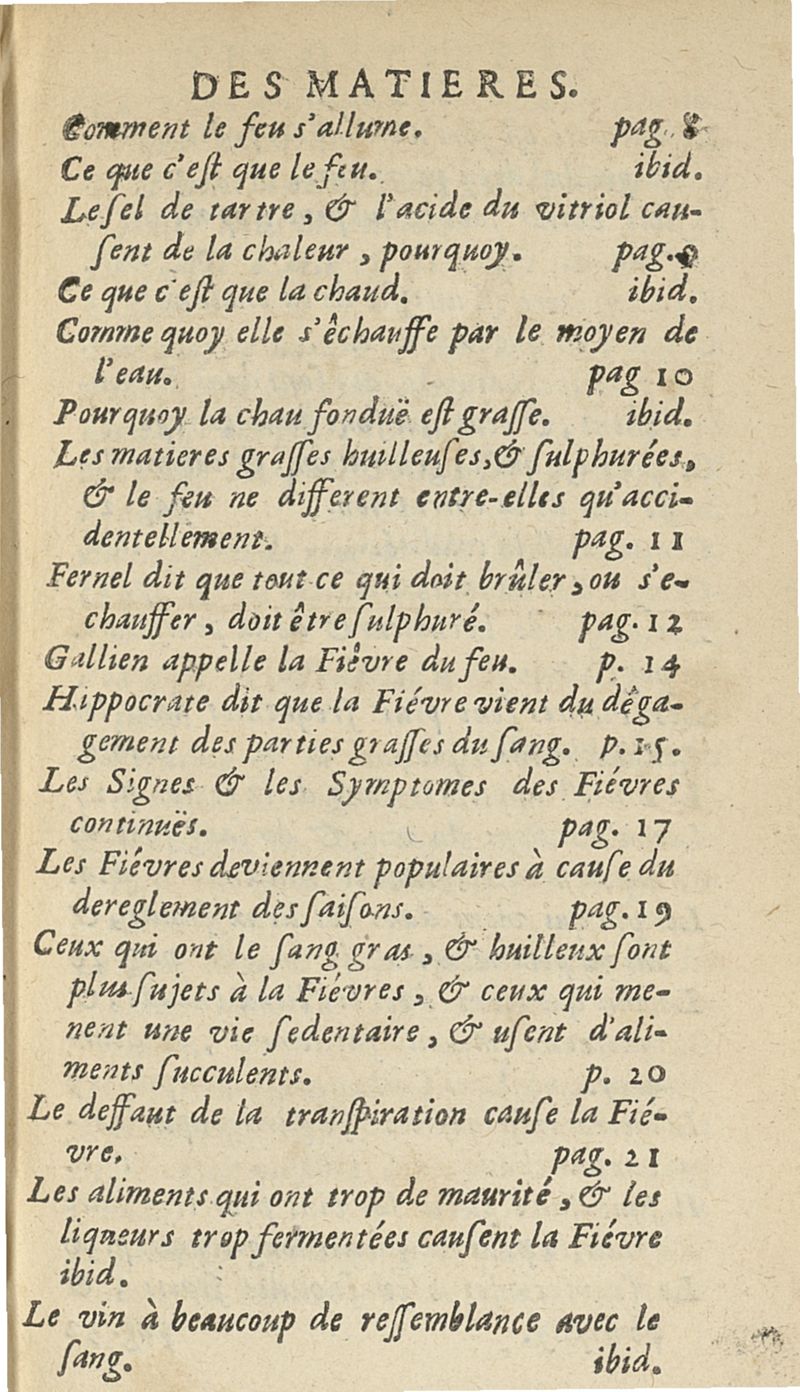 DES MATIERES.
Comment le feu s'allume. pag. 8
Ce que c'eſt que le feu. ibid.
Le ſel de tartre, & l'acide du vitriol cau-
ſent de la chaleur, pourquoy. pag. 9
Ce que c'eſt que la chaud. ibid.
Comme quoy elle s'êchauffe par le moyen de
l'eau. pag 10
Pourquoy la chau fonduë eſt graſſe. ibid.
Les matieres graſſes huilleuſes, & ſulphurées,
& le feu ne different entre-elles qu'acci-
dentellement. pag. 11
Fernel dit que tout ce qui doit brûler, ou s'e-
chauffer, doit être ſulphuré. pag. 12
Gallien appelle la Fiêvre du feu. p. 14
Hippocrate dit que la Fiévre vient du déga-
gement des parties graſſes du ſang. p. 15.
Les Signes & les Symptomes des Fiévres
continuës. pag. 17
Les Fiévres deviennent populaires à cauſe du
dereglement des ſaiſons. pag. 19
Ceux qui ont le ſang gras, & huilleux ſont
plus ſujets à la Fiévres, & ceux qui me-
nent une vie ſedentaire, & uſent d'ali-
ments ſucculents. p. 20
Le deffaut de la tranſpiration cauſe la Fié-
vre. pag. 21
Les aliments qui ont trop de maurité, & les
liqueurs trop fermentées cauſent la Fiévre
ibid.
Le vin à beaucoup de reſſemblance avec le
ſang. ibid.